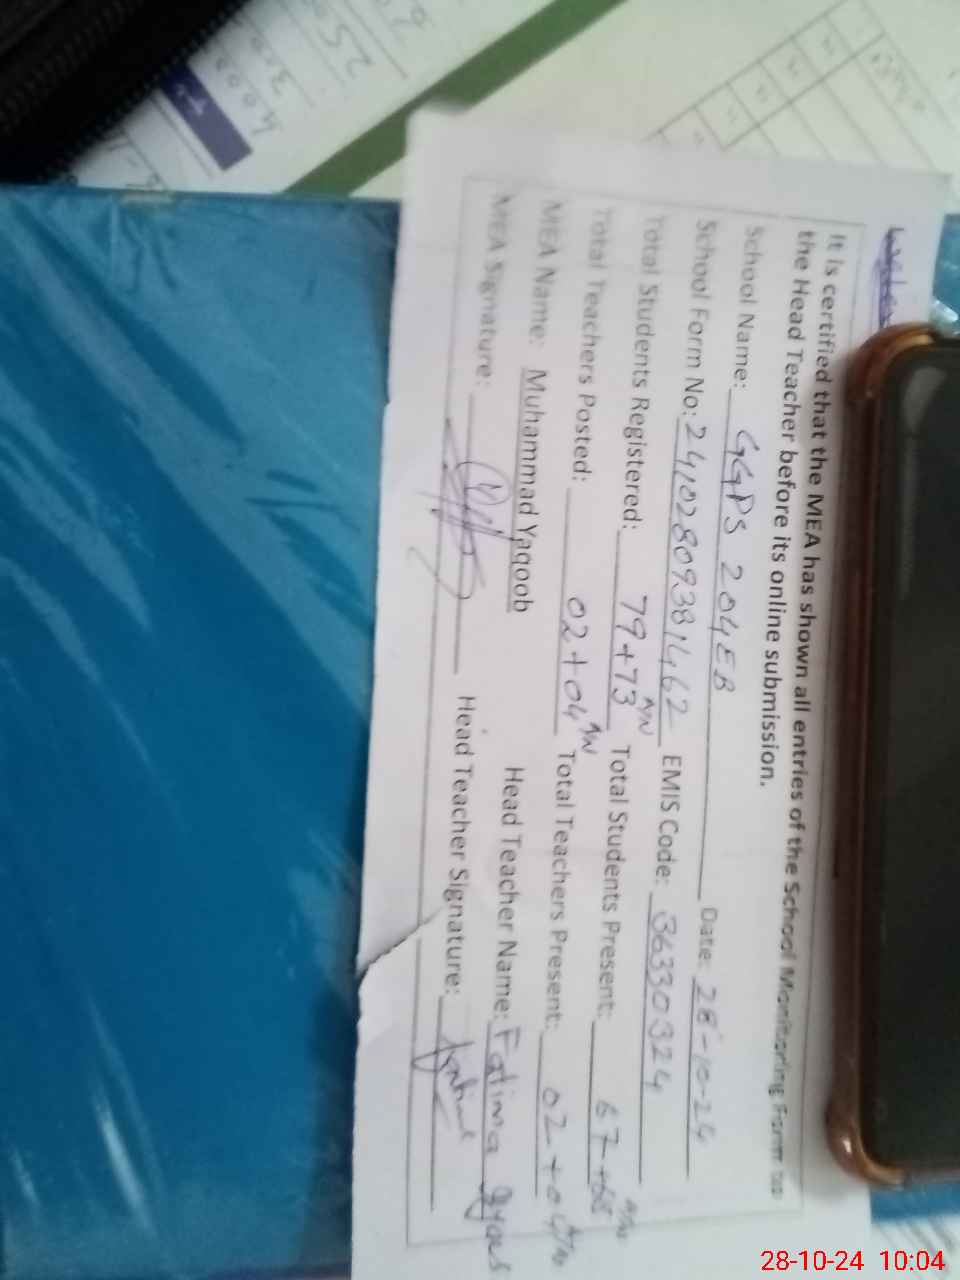 It is certified that the MEA has shown all entries of the School Monitoring Form to
the Head Teacher before its online submission.
School Name: GGPS 204EB Date: 28-10-24
School Form No: 24102809381462 EMIS Code: 36330324
Total Students Registered: 79+73 Total Students Present: 67+68
Total Teachers Posted: 02+04 Total Teachers Present: 02+04
MEA Name: Muhammad Yaqoob Head Teacher Name: Fatima
MEA Signature: Head Teacher Signature:
28-10-24 10:04